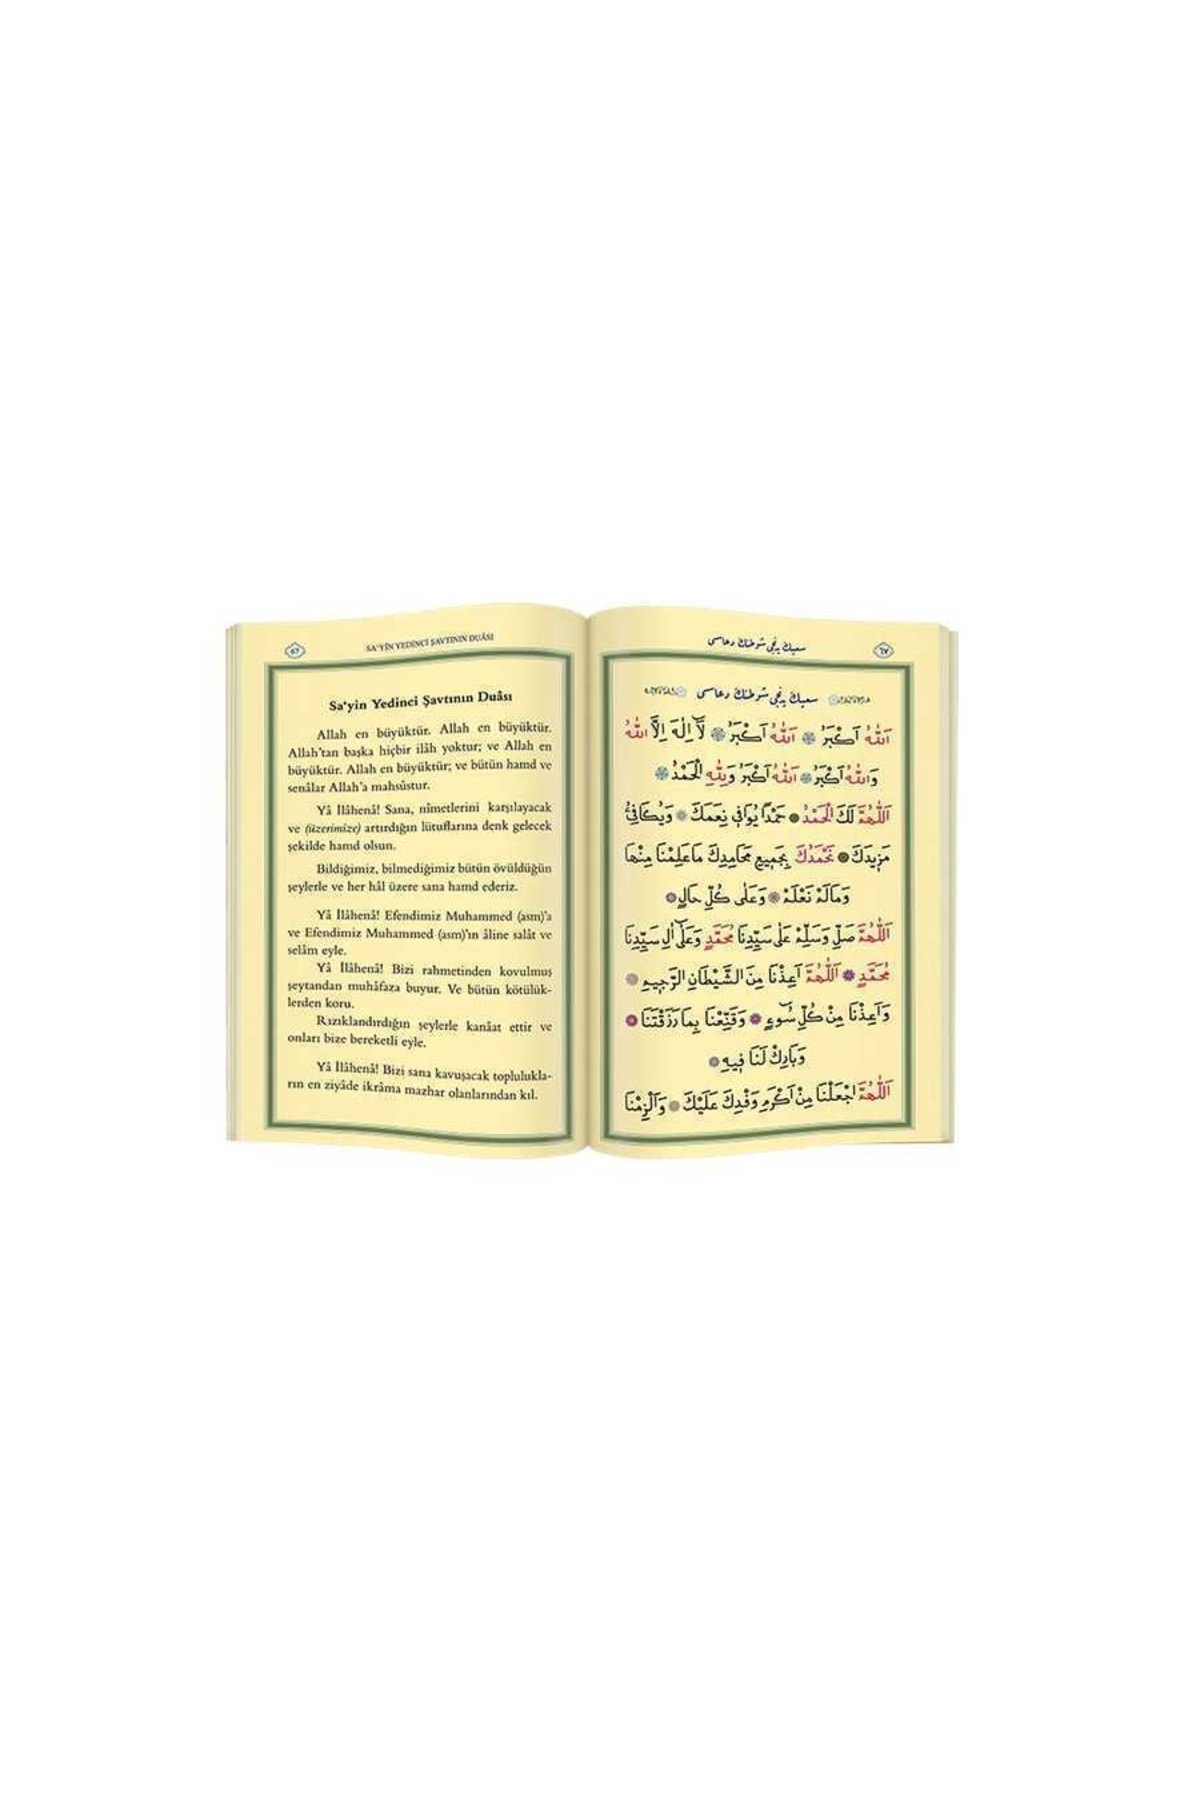 67
SA'YİN YEDİNCİ ŞAVTININ DUÂSI
Sa'yin Yedinci Şavtının Duâsı
Allah en büyüktür. Allah en büyüktür.
Allah'tan başka hiçbir ilâh yoktur; ve Allah en
büyüktür. Allah en büyüktür; ve bütün hamd ve
senâlar Allah'a mahsûstur.
Yâ İlâhenâ! Sana, nîmetlerini karşılayacak
ve (üzerimize) artırdığın lütuflarına denk gelecek
şekilde hamd olsun.
Bildiğimiz, bilmediğimiz bütün övüldüğün
şeylerle ve her hâl üzere sana hamd ederiz.
Yâ İlâhenâ! Efendimiz Muhammed (asm)'a
ve Efendimiz Muhammed (asm)'ın âline salât ve
selâm eyle.
Yâ İlâhenâ! Bizi rahmetinden kovulmuş
şeytandan muhâfaza buyur. Ve bütün kötülük-
lerden koru.
Rızıklandırdığın şeylerle kanâat ettir ve
onları bize bereketli eyle.
Yâ İlâhenâ! Bizi sana kavuşacak toplulukla-
rın en ziyâde ikrâma mazhar olanlarından kıl.
سعيك يدنجى شوطنك دعاسى
٦٧
سعيك يدنجى شوطنك دعاسى
اَللّٰهُ اَكْبَرُ اَللّٰهُ اَكْبَرُ لَٓا اِلٰهَ اِلَّا اللّٰهُ
وَاللّٰهُ اَكْبَرُ اَللّٰهُ اَكْبَرُ وَلِلّٰهِ الْحَمْدُ
اَللّٰهُمَّ لَكَ الْحَمْدُ حَمْدًا يُوَافٖي نِعَمَكَ وَيُكَافِئُ
مَزٖيدَكَ نَحْمَدُكَ بِجَمٖيعِ مَحَامِدِكَ مَا عَلِمْنَا مِنْهَا
وَمَا لَمْ نَعْلَمْ وَعَلٰى كُلِّ حَالٍ
اَللّٰهُمَّ صَلِّ وَسَلِّمْ عَلٰى سَيِّدِنَا مُحَمَّدٍ وَعَلٰٓى اٰلِ سَيِّدِنَا
مُحَمَّدٍ اَللّٰهُمَّ اَعِذْنَا مِنَ الشَّيْطَانِ الرَّجٖيمِ
وَاَعِذْنَا مِنْ كُلِّ سُٓوءٍ وَقَنِّعْنَا بِمَا رَزَقْتَنَا
وَبَارِكْ لَنَا فٖيهِ
اَللّٰهُمَّ اجْعَلْنَا مِنْ اَكْرَمِ وَفْدِكَ عَلَيْكَ وَاَلْزِمْنَا